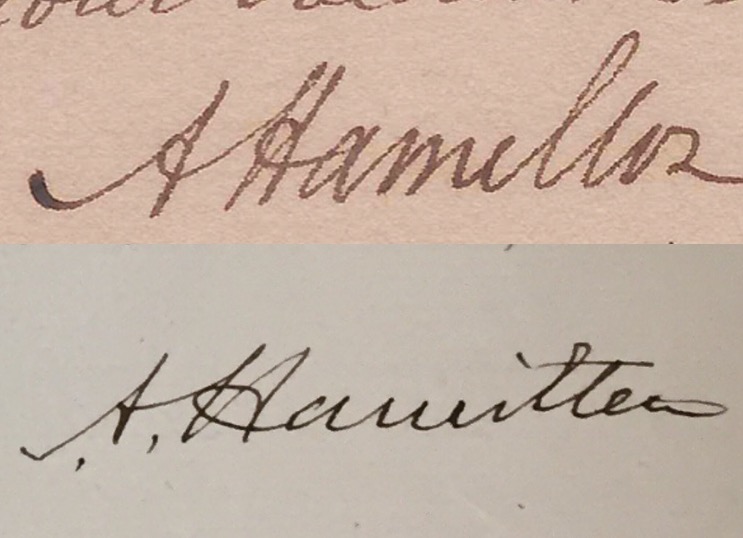 your
A Hamilton
A. Hamilton